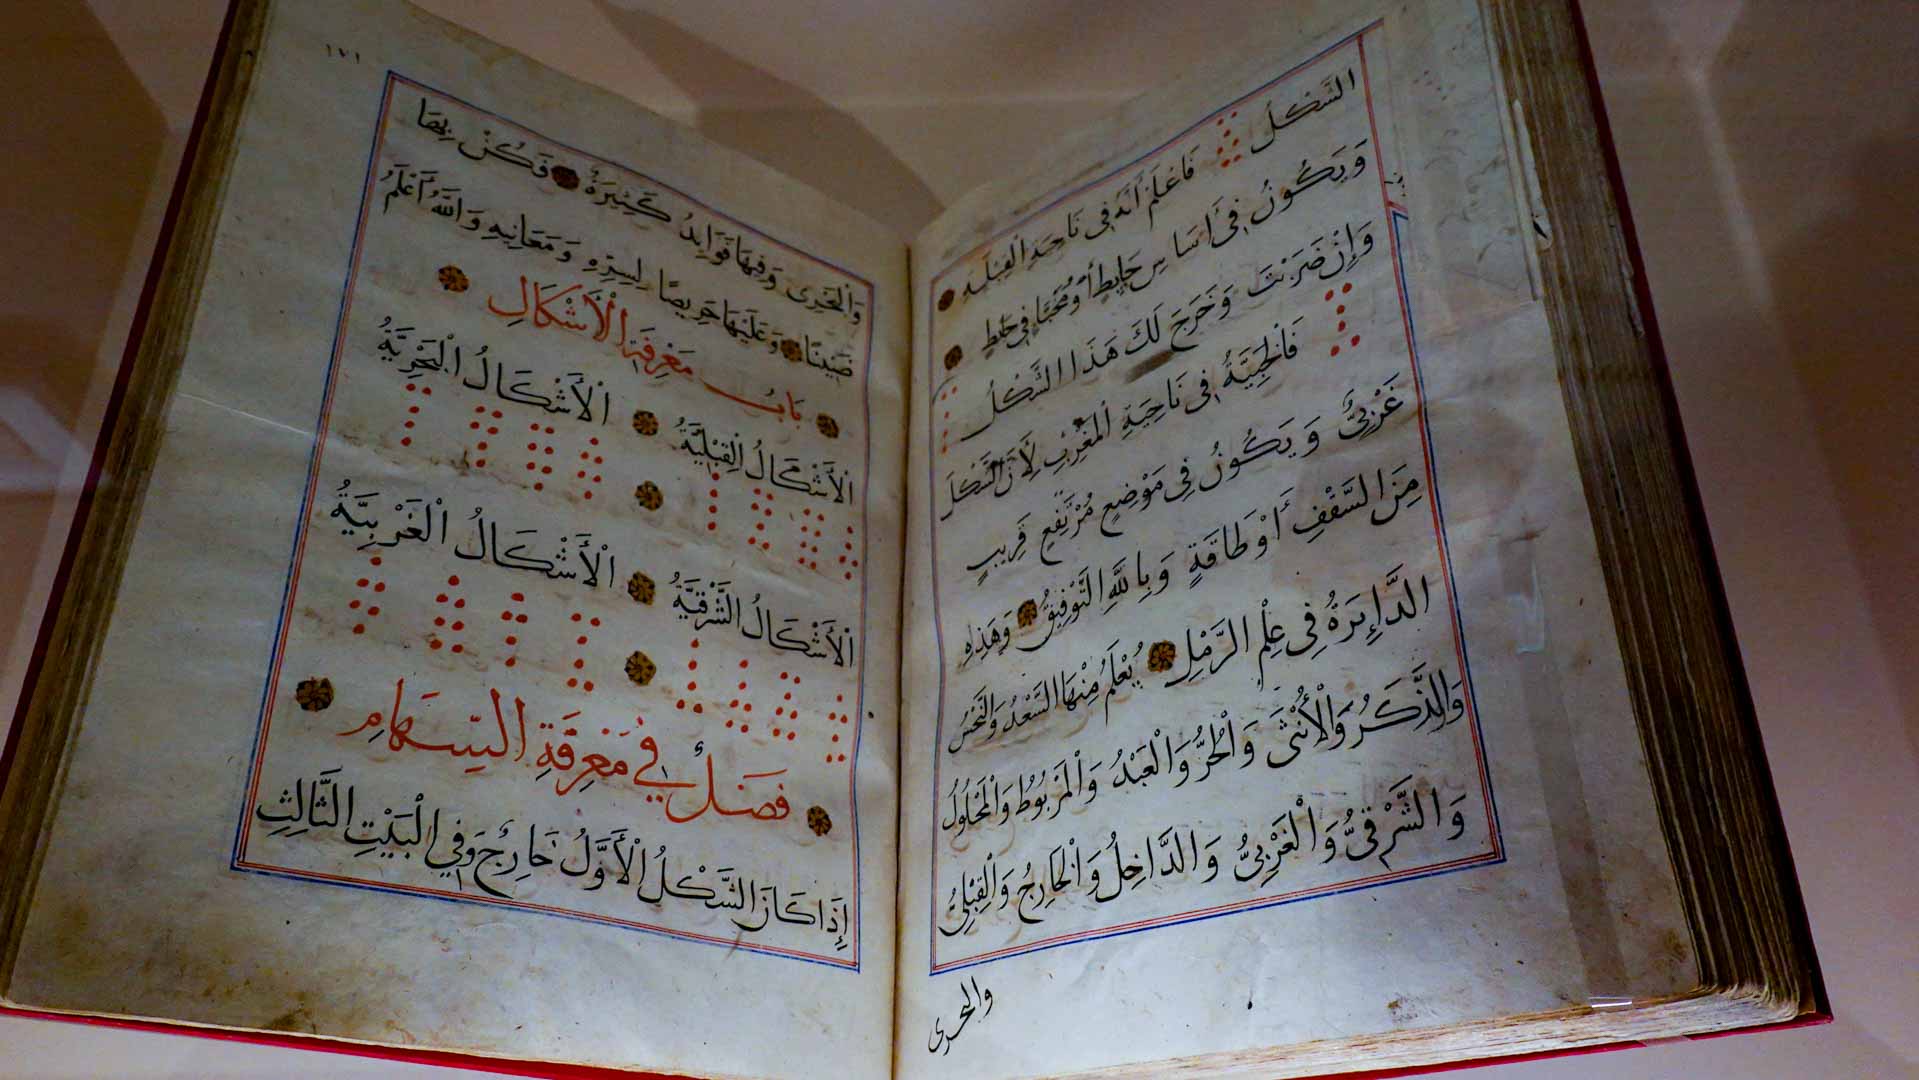 الشَّكْلُ فَاعْلَمْ أَنَّهُ فِي نَاحِيَةِ الْقِبْلَةِ
وَيَكُونُ فِي أَسَاسِ حَايِطٍ أَوْ مُخَبَّا فِي حَايِطٍ
وَإِنْ ضَرَبْتَ وَخَرَجَ لَكَ هَذَا الشَّكْلُ
فَالْخَبِيَّةُ فِي نَاحِيَةِ الْمَغْرِبِ لِأَنَّ الشَّكْلَ
غَرْبِيٌّ وَيَكُونُ فِي مَوْضِعٍ مُرْتَفِعٍ قَرِيبٍ
مِنَ السَّقْفِ أَوْ طَاقَةٍ وَبِاللَّهِ التَّوْفِيقُ وَهَذِهِ
الدَّايِرَةُ فِي عِلْمِ الرَّمْلِ يُعْلَمُ مِنْهَا السَّعْدُ وَالنَّحْسُ
وَالذَّكَرُ وَالْأُنْثَى وَالْحُرُّ وَالْعَبْدُ وَالْمَرْبُوطُ وَالْمَحْلُولُ
وَالشَّرْقِيُّ وَالْغَرْبِيُّ وَالدَّاخِلُ وَالْخَارِجُ وَالْقِبْلِيُّ
والبحرى
١٧١
وَالْبَحْرِى وَفِيهَا فَوَايِدُ كَثِيرَةٌ فَكُنْ بِهَا
ضَنِينًا وَعَلَيْهَا حَرِيصًا لِسِرِّهِ وَمَعَانِيهِ وَاللَّهُ أَعْلَمُ
بَابُ مَعْرِفَةِ الْأَشْكَالِ
الْأَشْكَالُ الْقِبْلِيَّةُ الْأَشْكَالُ الْبَحْرِيَّةُ
الْأَشْكَالُ الشَّرْقِيَّةُ الْأَشْكَالُ الْغَرْبِيَّةُ
فَصْلٌ فِي مَعْرِفَةِ السِّهَامِ
إِذَا كَانَ الشَّكْلُ الْأَوَّلُ خَارِجٌ وَفِي الْبَيْتِ الثَّالِثِ